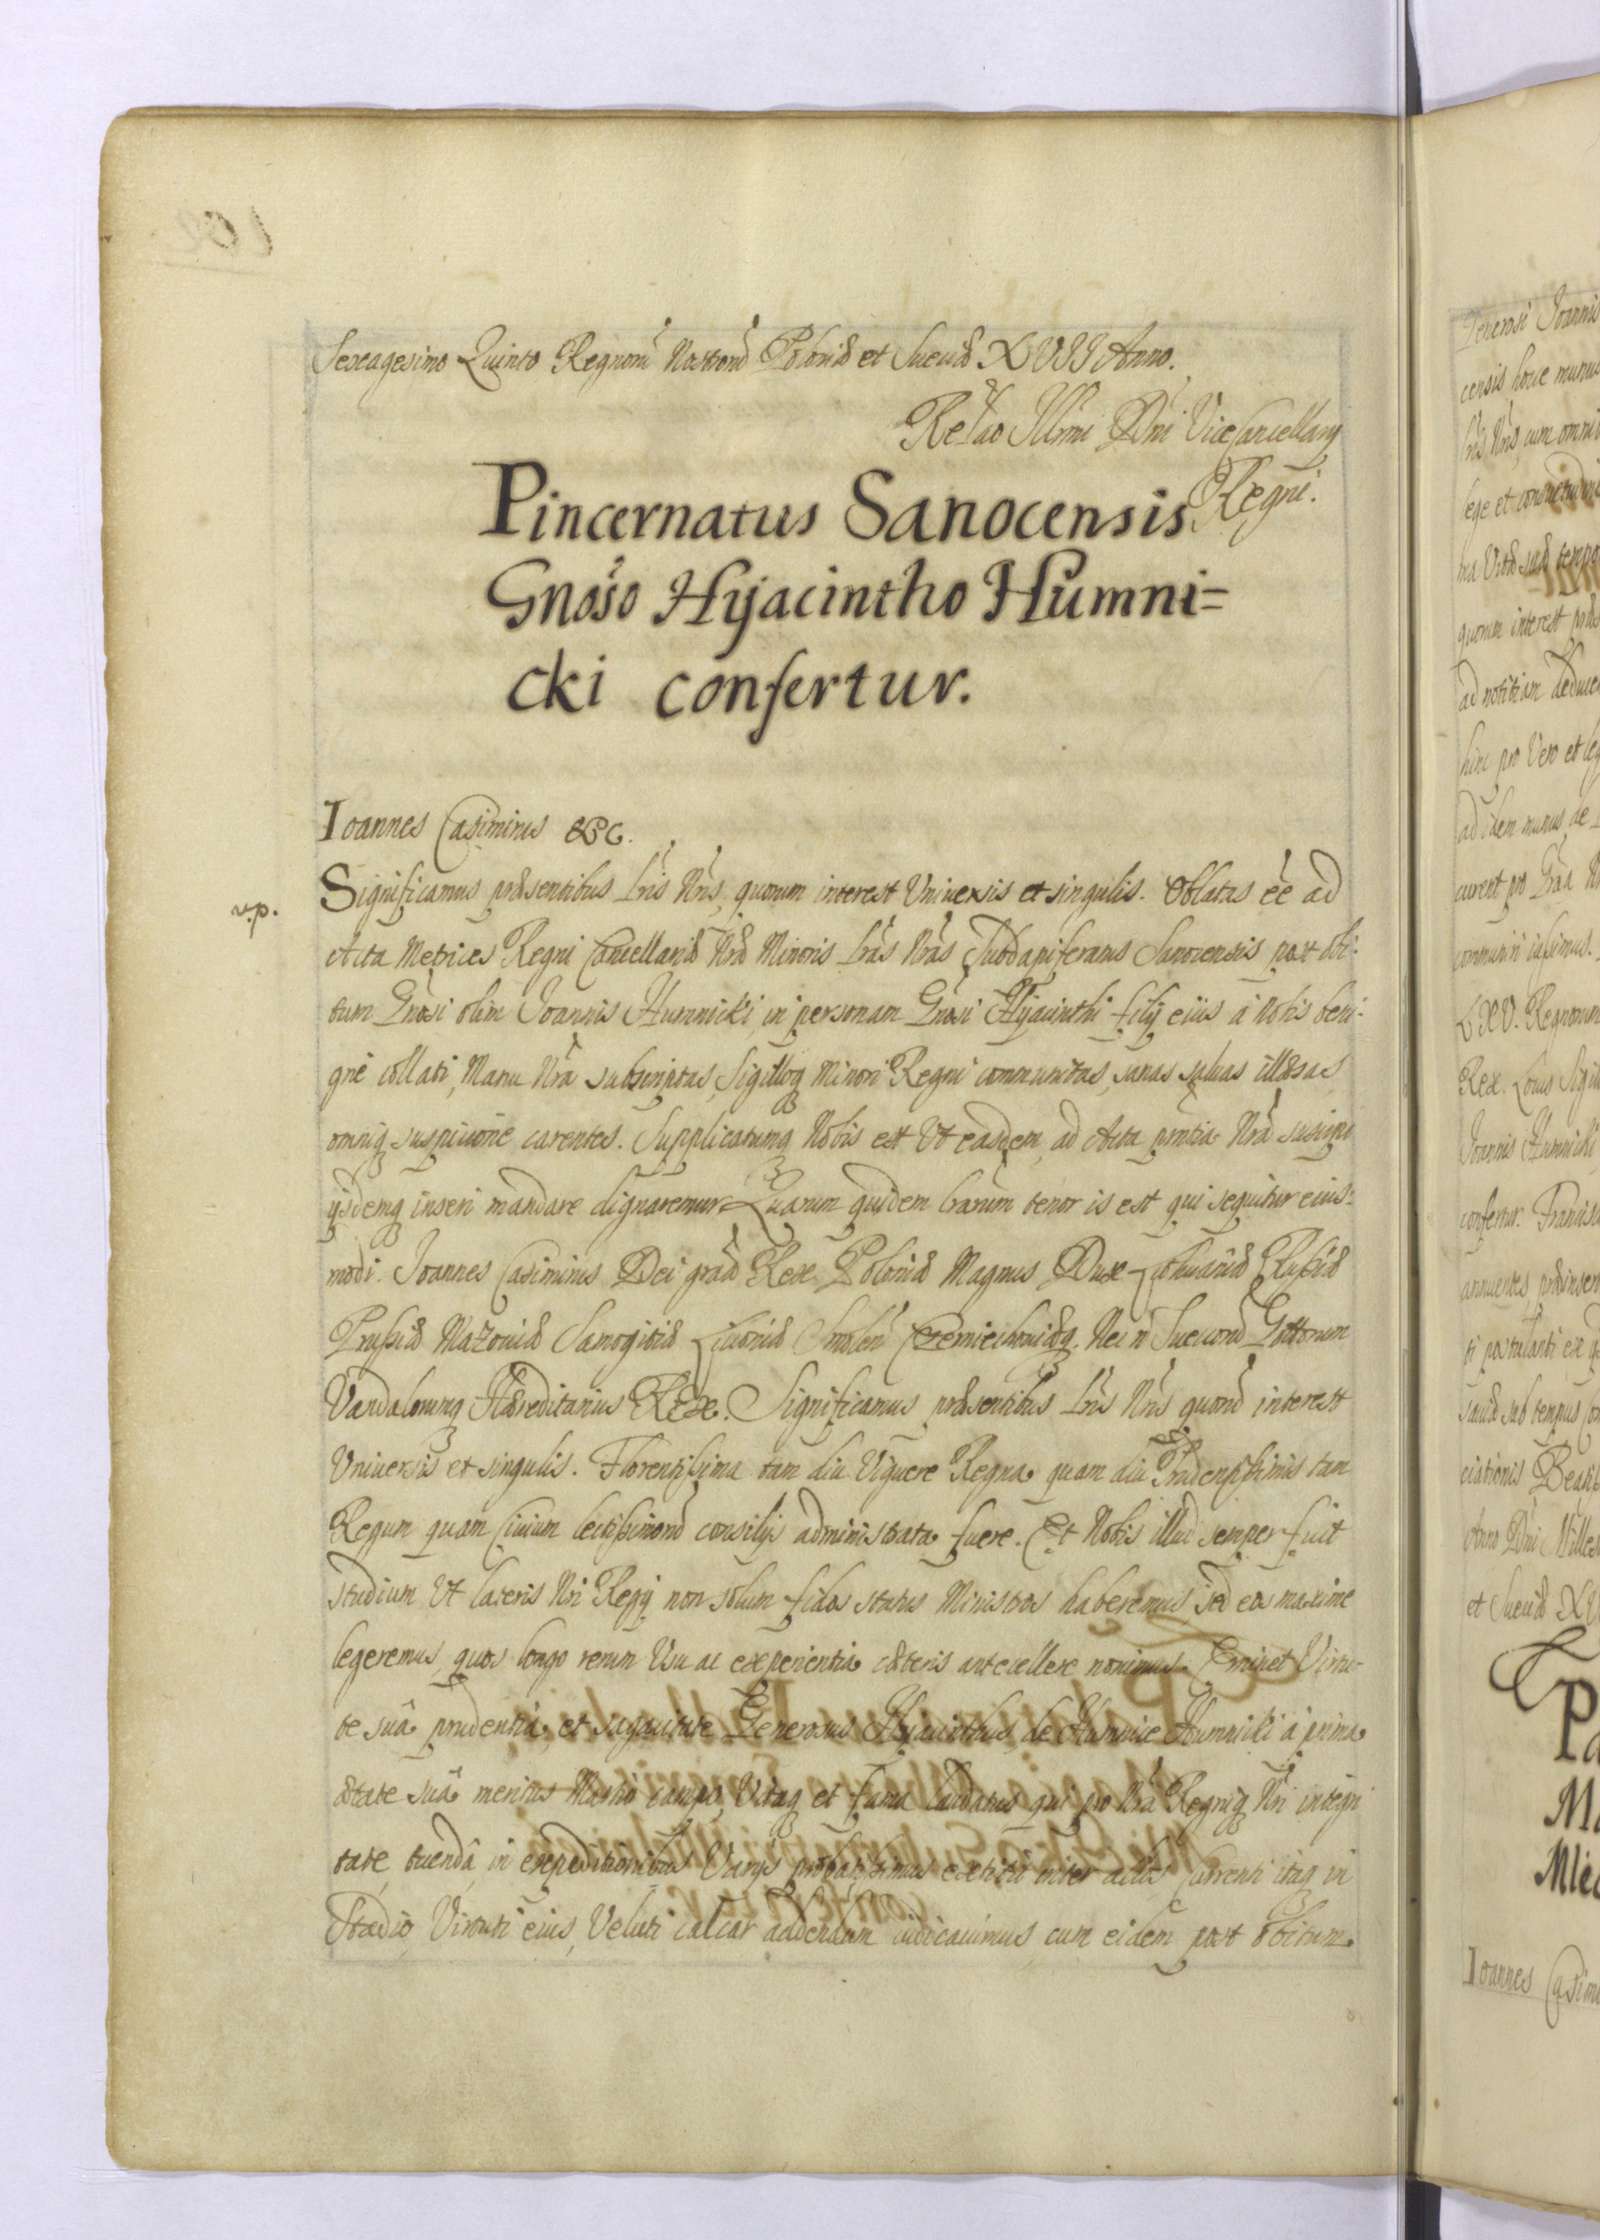 Sexagesimo Quinto Regnorũ Nostrorũ Poloniæ et Sueciæ XVII Anno.
Relao Illmi Dni ViceCancellarij
Regni.
Pincernatus Sanocensis
Gnoso Hyjacintho Humni=
cki confertur.
Ioannes Casimirus &c.
v.p.
Significamus præsentibus Lris Nris, quorum interest Vniuersis et singulis. Oblatas eẽ ad
Acta Metrices Regni Cancellariæ Nræ Minoris Lras Nras Subdapiferatus Sanocensis post obi-
tum Gnosi olim Ioannis Humnicki in personam Gnosi Hyacinthi filij eius à Nobis beni-
gnè collati, Manu Nra subscriptas, Sigilloq Minori Regni communitas, sanas saluas illæsas
omniq suspicione carentes. Supplicatumq Nobis est Vt easdem ad Acta pntia Nra suscipi
ijsdemq inseri mandare dignaremur Quarum quidem Lrarum tenor is est qui sequitur eius-
modi. Ioannes Casimirus Dei gratia Rex Poloniæ Magnus Dux Lithuaniæ Russiæ
Prussiæ Mazouiæ Samogitiæ Liuoniæ Smolen Czerniechouiæq. Nec n Suecorũ Gottorum
Vandalorumq Hæreditarius REX. Significamus præsentibus Lris Nris quorũ interest
Vniuersis et singulis. Florentissima tam diu Viguere Regna quam diu Prudentissimis tam
Regum quam Ciuium lectissimorũ consilijs administrata fuere. Et Nobis illud semper fuit
studium Vt lateris Nri Regij non solum fidos status Ministros haberemus, sed eos maxime
legeremus, quos longo rerum Vsu ac experientia cæteris antecellere nouimus. Eminet Virtu-
te suâ prudentiâ, et sagacitate Generosus Hyacinthus de Humnie Humnicki à prima
ætate suâ meritus Martio campo, Vitaq et fama laudatus qui pro Nra Regniq Nri integri
tate, tuendâ in expeditionibus Varijs probatissimus extitit inter acies Currenti itaq in
Stadio, Virtuti eius, Veluti calcar addendum iudicauimus cum eidem post obitum